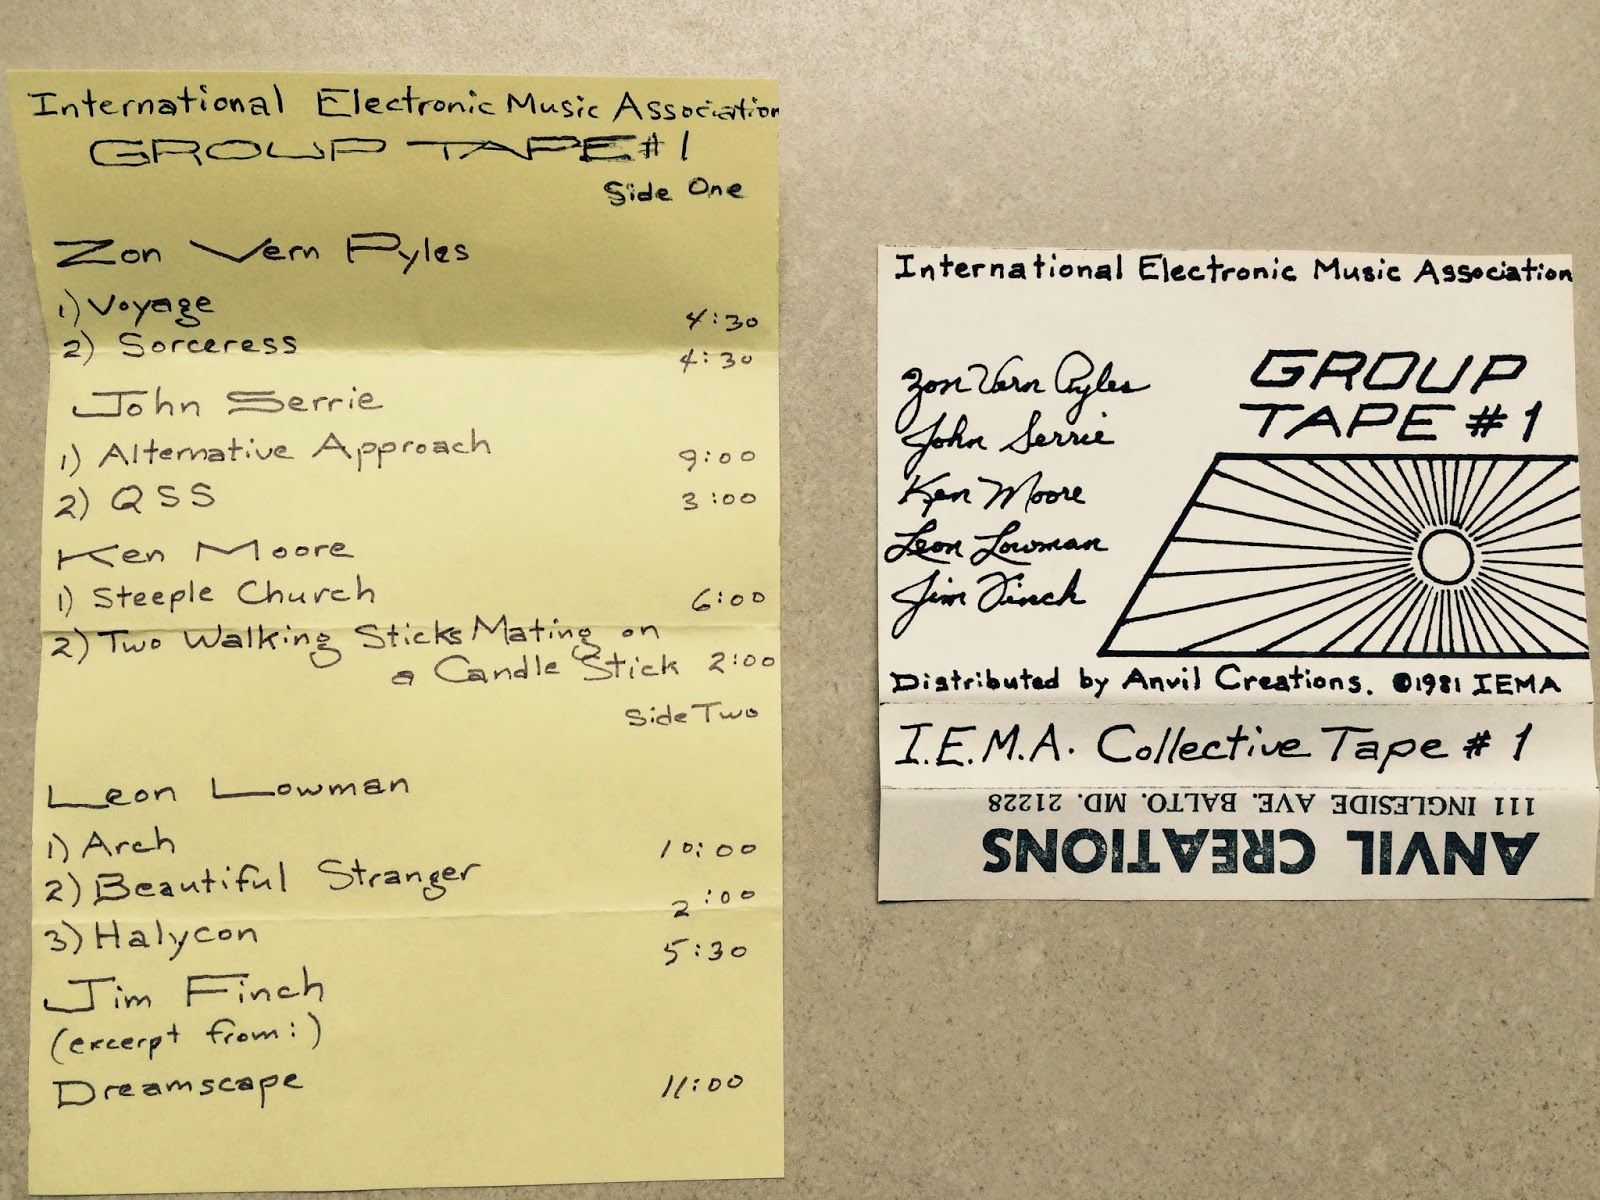 International Electronic Music Association
GROUP TAPE #1
Side One
Zon Vern Pyles
1) Voyage 4:30
2) Sorceress 4:30
John Serrie
1) Alternative Approach 9:00
2) QSS 3:00
Ken Moore
1) Steeple Church 6:00
2) Two Walking Sticks Mating on
a Candle Stick 2:00
Side Two
Leon Lowman
1) Arch 10:00
2) Beautiful Stranger 2:00
3) Halycon 5:30
Jim Finch
(excerpt from:)
Dreamscape 11:00
International Electronic Music Association
GROUP
TAPE #1
Zon Vern Pyles
John Serrie
Ken Moore
Leon Lowman
Jim Finch
Distributed by Anvil Creations. ©1981 IEMA
I.E.M.A. Collective Tape #1
ANVIL CREATIONS
111 INGLESIDE AVE. BALTO. MD. 21228